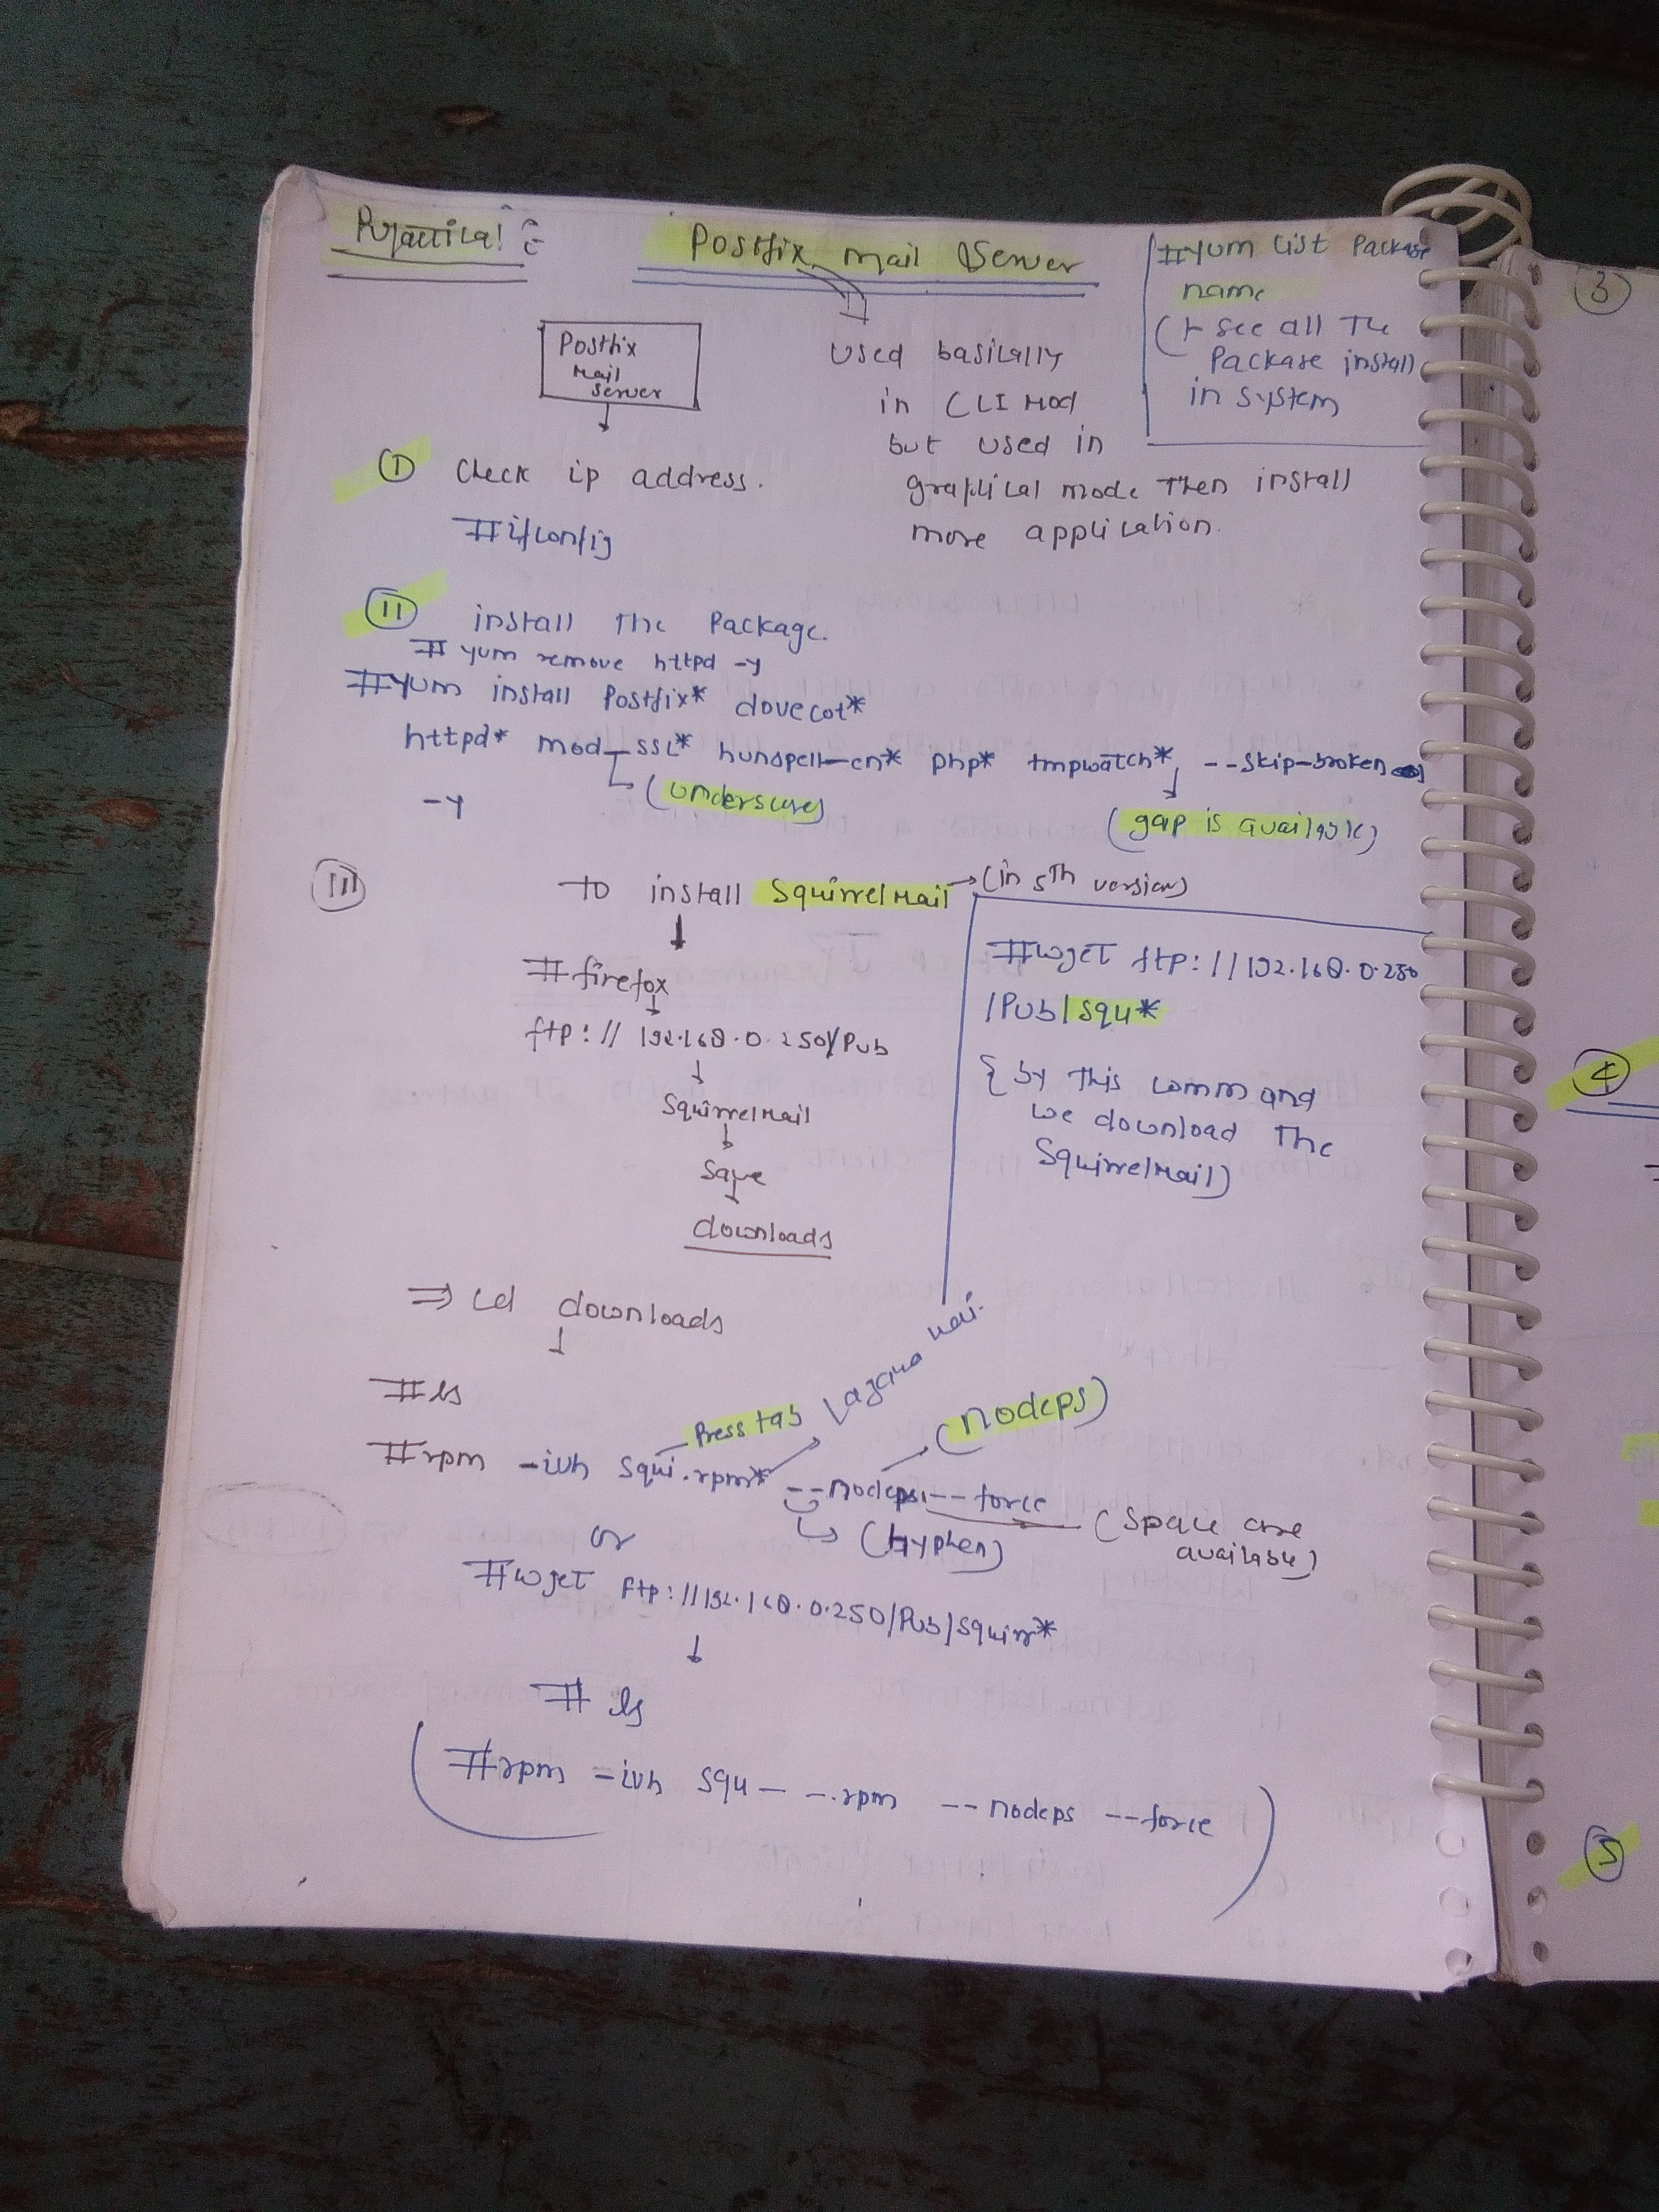 Practical :-
Postfix mail Server
#yum list Package
name
(→ see all The
Package install
in system
Postfix
Mail
Server
used basically
in CLI Mod
but used in
graphical mode Then install
more application.
① Check ip address.
#ifconfig
② install The Package.
# yum remove httpd -y
#yum install Postfix* dovecot*
httpd* mod_ssl* hunspell-en* php* tmpwatch* --skip-broken
-y
(underscore)
(gap is available)
③ To install SquirrelMail → (in 5th version)
#firefox
ftp://192.168.0.250/Pub
SquirrelMail
Save
downloads
#wget ftp://192.168.0.250
/Pub/squ*
{ by This command
we download The
SquirrelMail)
⇒ cd downloads
#ls
Press tab
(nodeps)
#rpm -ivh squi.rpm* --nodeps --force
(hyphen)
(space are
available)
or
#wget ftp://192.168.0.250/Pub/squirr*
# ls
(#rpm -ivh squ— —.rpm --nodeps --force)
3
4
5